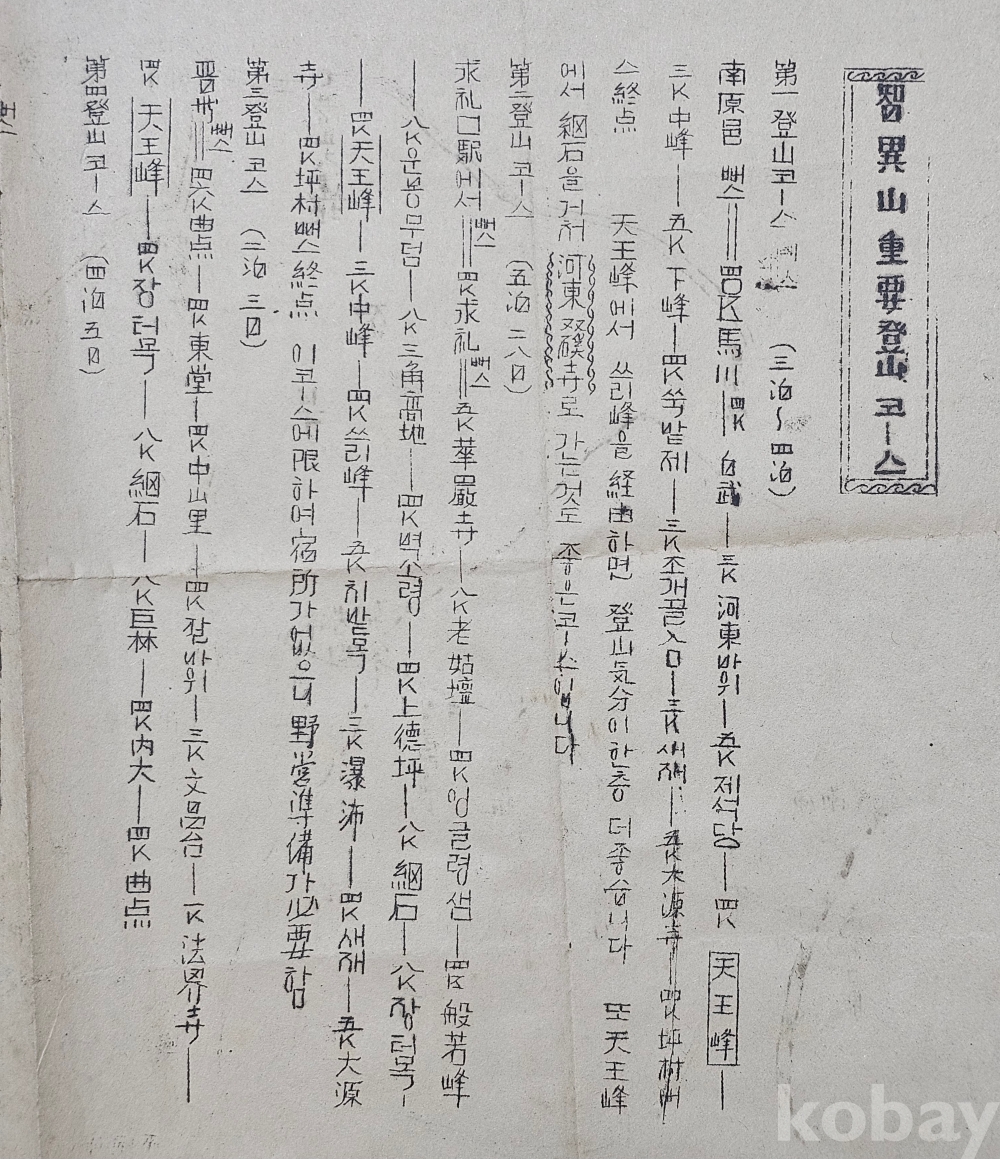 智異山重要登山코ー스
第一登山코ー스 (三泊~四泊)
南原邑 뻐스══四〇K馬川──四K 白武──三K 河東바위──五K제석당──四K 天王峰──
三K中峰──五K 下峰──四K쑥밭제──三K조개골入口──三K새재──五K大源寺══四K坪村뻐
스終点 天王峰에서 쓰리峰을 経由하면 登山気分이한층 더좋습니다 또天王峰
에서 細石을거처 河東双磎寺로 가는것도 좋은코ー스입니다
第二登山코ー스 (五泊 六日)
求礼口駅에서══四K求礼══五K華嚴寺──八K老姑壇──四K임글령샘──四K般若峰
뻐스 뻐스
──八K운봉무덤──八K三角高地──四K벽소령──四K上德坪──八K 細石──八K장터목──
──四K天王峰──三K中峰──四K쓰리峰──五K치밭목──三K瀑沛──四K새재──五K大源
寺──四K坪村뻐스終点 이코ー스에限하여宿所가없으니野営準備가必要함
第三登山코스 (二泊 三日)
晋州══四六K曲点──四K東堂──四K中山里──四K칼바위──三K文昌台──一K法界寺──
뻐스
四K 天王峰──四K장터목──八K細石──八K巨林──四K内大──四K曲点
第四登山코ー스 (四泊五日)
뻐스
kobay